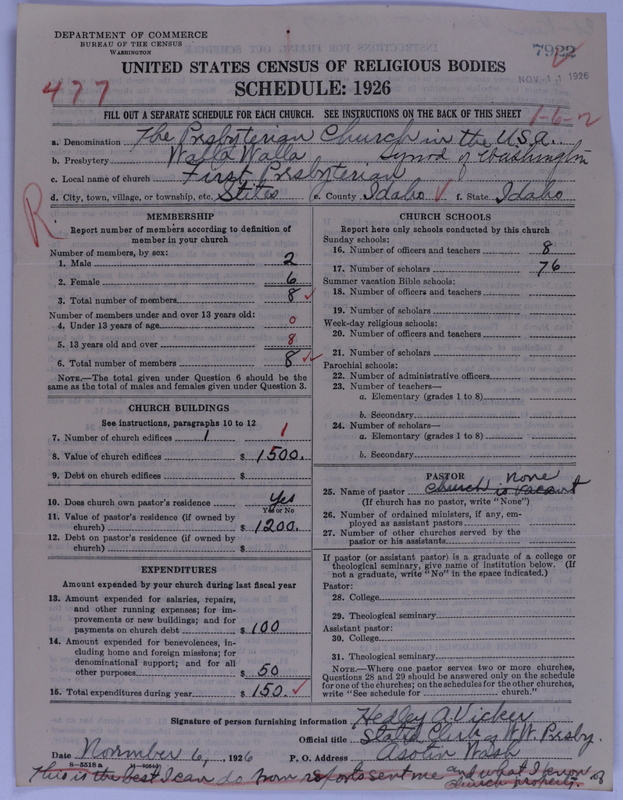 DEPARTMENT OF COMMERCE
BUREAU OF THE CENSUS
WASHINGTON
7922
NOV 11 1926
UNITED STATES CENSUS OF RELIGIOUS BODIES
477
SCHEDULE: 1926
FILL OUT A SEPARATE SCHEDULE FOR EACH CHURCH. SEE INSTRUCTIONS ON THE BACK OF THIS SHEET
1-6-2
a. Denomination The Presbyterian Church in the U.S.A.
b. Presbytery Walla Walla Synod of Washington
c. Local name of church First Presbyterian
d. City, town, village, or township, etc. Stites e. County Idaho f. State Idaho
R
MEMBERSHIP
Report number of members according to definition of
member in your church
Number of members, by sex:
1. Male 2
2. Female 6
3. Total number of members 8
Number of members under and over 13 years old:
4. Under 13 years of age 0
5. 13 years old and over 8
6. Total number of members 8
NOTE.—The total given under Question 6 should be the
same as the total of males and females given under Question 3.
CHURCH BUILDINGS
See instructions, paragraphs 10 to 12
7. Number of church edifices 1 1
8. Value of church edifices $ 1500.
9. Debt on church edifices $
10. Does church own pastor's residence Yes
Yes or No
11. Value of pastor's residence (if owned by
church) $ 1200.
12. Debt on pastor's residence (if owned by
church) $
EXPENDITURES
Amount expended by your church during last fiscal year
13. Amount expended for salaries, repairs,
and other running expenses; for im-
provements or new buildings; and for
payments on church debt $ 100
14. Amount expended for benevolences, in-
cluding home and foreign missions; for
denominational support; and for all
other purposes $ 50
15. Total expenditures during year $ 150.
CHURCH SCHOOLS
Report here only schools conducted by this church
Sunday schools:
16. Number of officers and teachers 8
17. Number of scholars 76
Summer vacation Bible schools:
18. Number of officers and teachers
19. Number of scholars
Week-day religious schools:
20. Number of officers and teachers
21. Number of scholars
Parochial schools:
22. Number of administrative officers
23. Number of teachers—
a. Elementary (grades 1 to 8)
b. Secondary
24. Number of scholars—
a. Elementary (grades 1 to 8)
b. Secondary
PASTOR
none
25. Name of pastor Church is vacant
(If church has no pastor, write "None")
26. Number of ordained ministers, if any, em-
ployed as assistant pastors
27. Number of other churches served by the
pastor or his assistants
If pastor (or assistant pastor) is a graduate of a college or
theological seminary, give name of institution below. (If
not a graduate, write "No" in the space indicated.)
Pastor:
28. College
29. Theological seminary
Assistant pastor:
30. College
31. Theological seminary
NOTE.—Where one pastor serves two or more churches,
Questions 28 and 29 should be answered only on the schedule
for one of the churches; on the schedules for the other churches,
write "See schedule for church."
Signature of person furnishing information Hedley A. Vicker
Official title Stated Clerk W.W. Presby.
Date November 6, 1926 P. O. Address Asotin Wash
8—5518a
This is the best I can do from reports sent me and what I know of
church property.